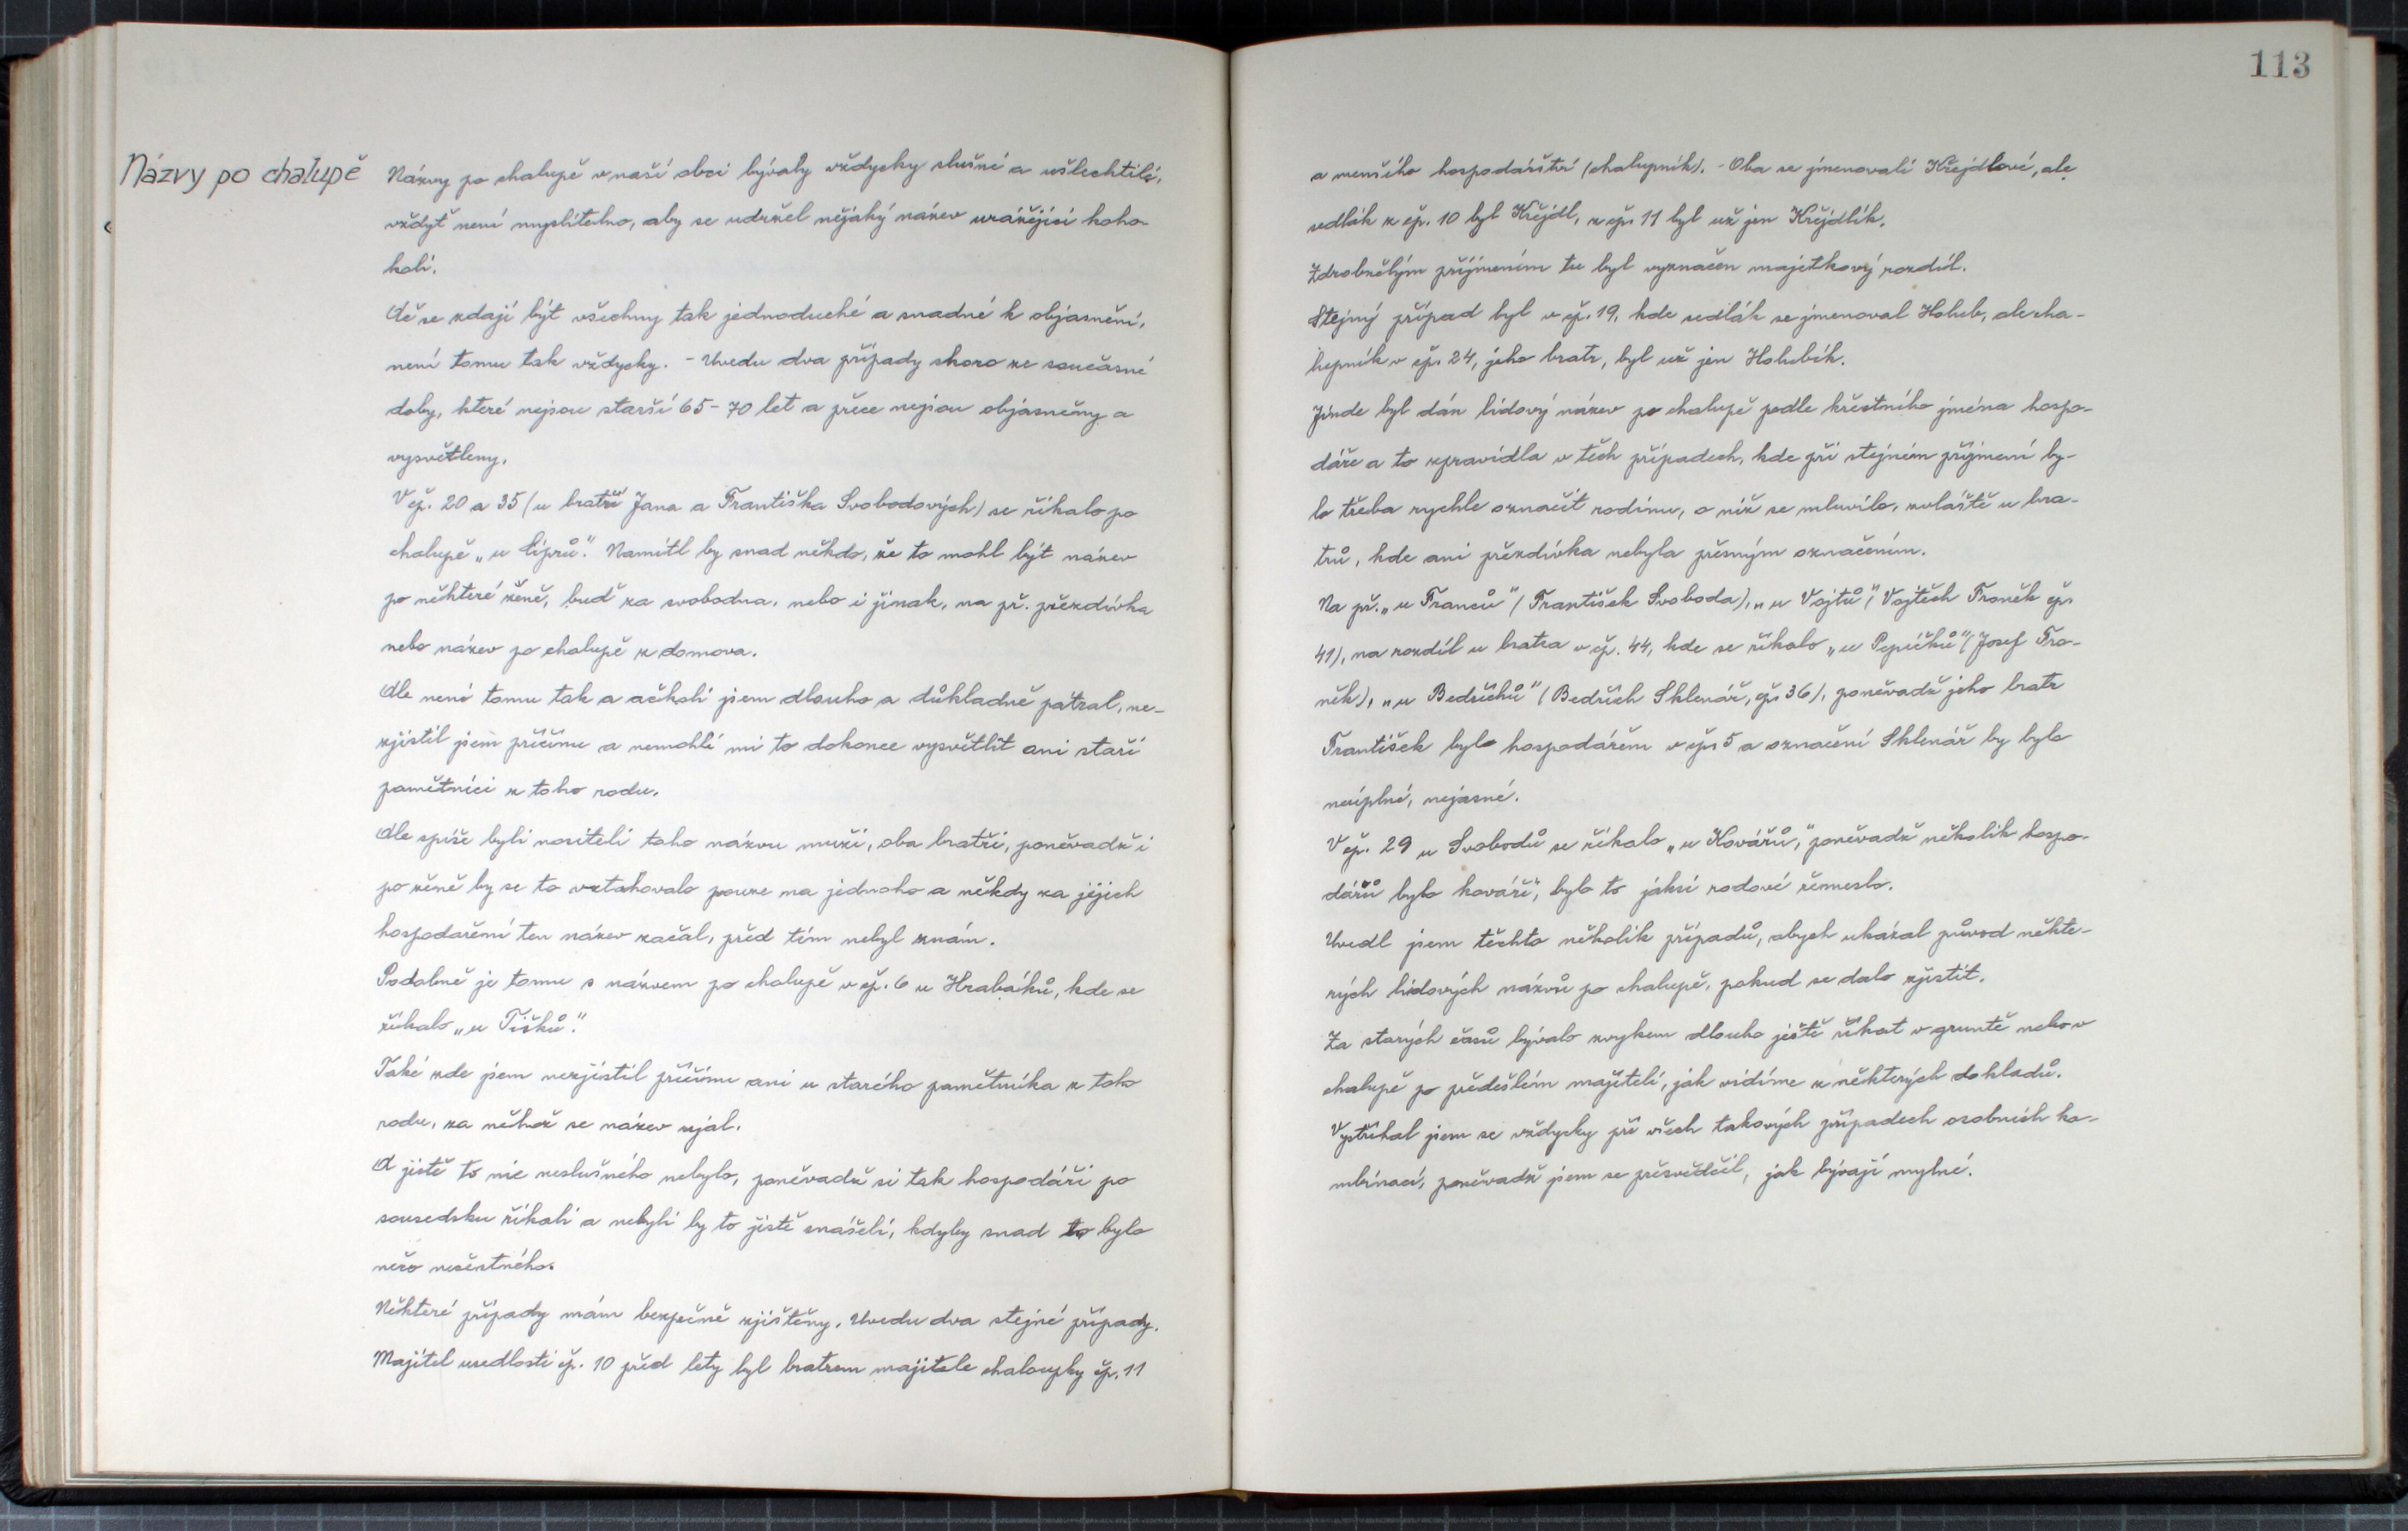 Názvy po chalupě
Názvy po chalupě v naší obci bývaly vždycky slušné a ušlechtilé,
vždyť není myslitelno, aby se udržel nějaký název urážející koho-
koli.
Ač se zdají být všechny tak jednoduché a snadné k objasnění,
není tomu tak vždycky. - Uvedu dva případy skoro ze současné
doby, které nejsou starší 65-70 let a přece nejsou objasněny a
vysvětleny.
V čp. 20 a 35 (u bratří Jana a Františka Svobodových) se říkalo po
chalupě „u Cíprů". Namítl by snad někdo, že to mohl být název
po některé ženě, buď za svobodna, nebo i jinak, na př. přezdívka
nebo název po chalupě z domova.
Ale není tomu tak a ačkoli jsem dlouho a důkladně pátral, ne-
zjistil jsem příčinu a nemohli mi to dokonce vysvětlit ani staří
pamětníci z toho rodu.
Ale spíše byli nositeli toho názvu muži, oba bratři, poněvadž i
po ženě by se to vztahovalo pouze na jednoho a někdy za jejich
hospodaření ten název začal, před tím nebyl znám.
Podobně je tomu s názvem po chalupě v čp. 6 u Hrabáků, kde se
říkalo „u Tišků".
Také zde jsem nezjistil příčinu ani u starého pamětníka z toho
rodu, za něhož se název ujal.
A jistě to nic neslušného nebylo, poněvadž si tak hospodáři po
sousedsku říkali a nebyli by to jistě snášeli, kdyby snad to bylo
něco nečestného.
Některé případy mám bezpečně zjištěny. Uvedu dva stejné případy.
Majitel usedlosti čp. 10 před lety byl bratrem majitele chaloupky čp. 11
113
a menšího hospodářství (chalupník). - Oba se jmenovali Křejdlové, ale
sedlák z čp. 10 byl Křejdl, z čp. 11 byl už jen Křejdlík.
Zdrobnělým příjmením tu byl vyznačen majetkový rozdíl.
Stejný případ byl v čp. 19, kde sedlák se jmenoval Holub, ale cha-
lupník v čp. 24, jeho bratr, byl už jen Holubík.
Jinde byl dán lidový název po chalupě podle křestního jména hospo-
dáře a to zpravidla v těch případech, kde při stejném příjmení by-
lo třeba rychle označit rodinu, o níž se mluvilo, zvláště u bra-
trů, kde ani přezdívka nebyla přesným označením.
Na př. „u Franců" (František Svoboda), „u Vojtů" (Vojtěch Froněk čp.
41), na rozdíl u bratra v čp. 44, kde se říkalo „u Pepíčků" (Josef Fro-
něk), „u Bedřichů" (Bedřich Sklenář, čp. 36), poněvadž jeho bratr
František bylo hospodářem v čp. 5 a označení Sklenář by bylo
neúplné, nejasné.
V čp. 29 u Svobodů se říkalo „u Kovářů," poněvadž několik hospo-
dářů bylo kováři, bylo to jaksi rodové řemeslo.
Uvedl jsem těchto několik případů, abych ukázal původ někte-
rých lidových názvů po chalupě, pokud se dalo zjistit.
Za starých časů bývalo zvykem dlouho ještě říkat v gruntě nebo v
chalupě po předešlém majiteli, jak vidíme z některých dokladů.
Vystříhal jsem se vždycky při všech takových případech osobních ko-
mbinací, poněvadž jsem se přesvědčil, jak bývají mylné.